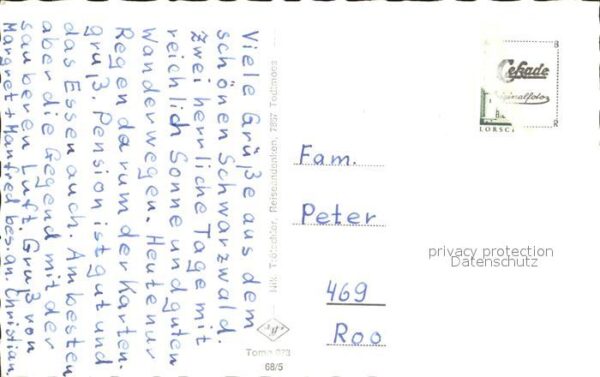 Viele Grüße aus dem
schönen Schwarzwald.
Zwei herrliche Tage mit
reichlich Sonne und guten
Wanderwegen. Heute nur
Regen darum der Karten-
gruß. Pension ist gut und
das Essen auch. Am besten
aber die Gegend mit der
sauberen Luft. Gruß von
Margret + Manfred bes. an. Christian
Reiseandenken, 7867 Todtmoos
68/5
Cekade
Originalfoto
B
R
LORSC
Fam.
Peter
469
Roo
privacy protection
Datenschutz